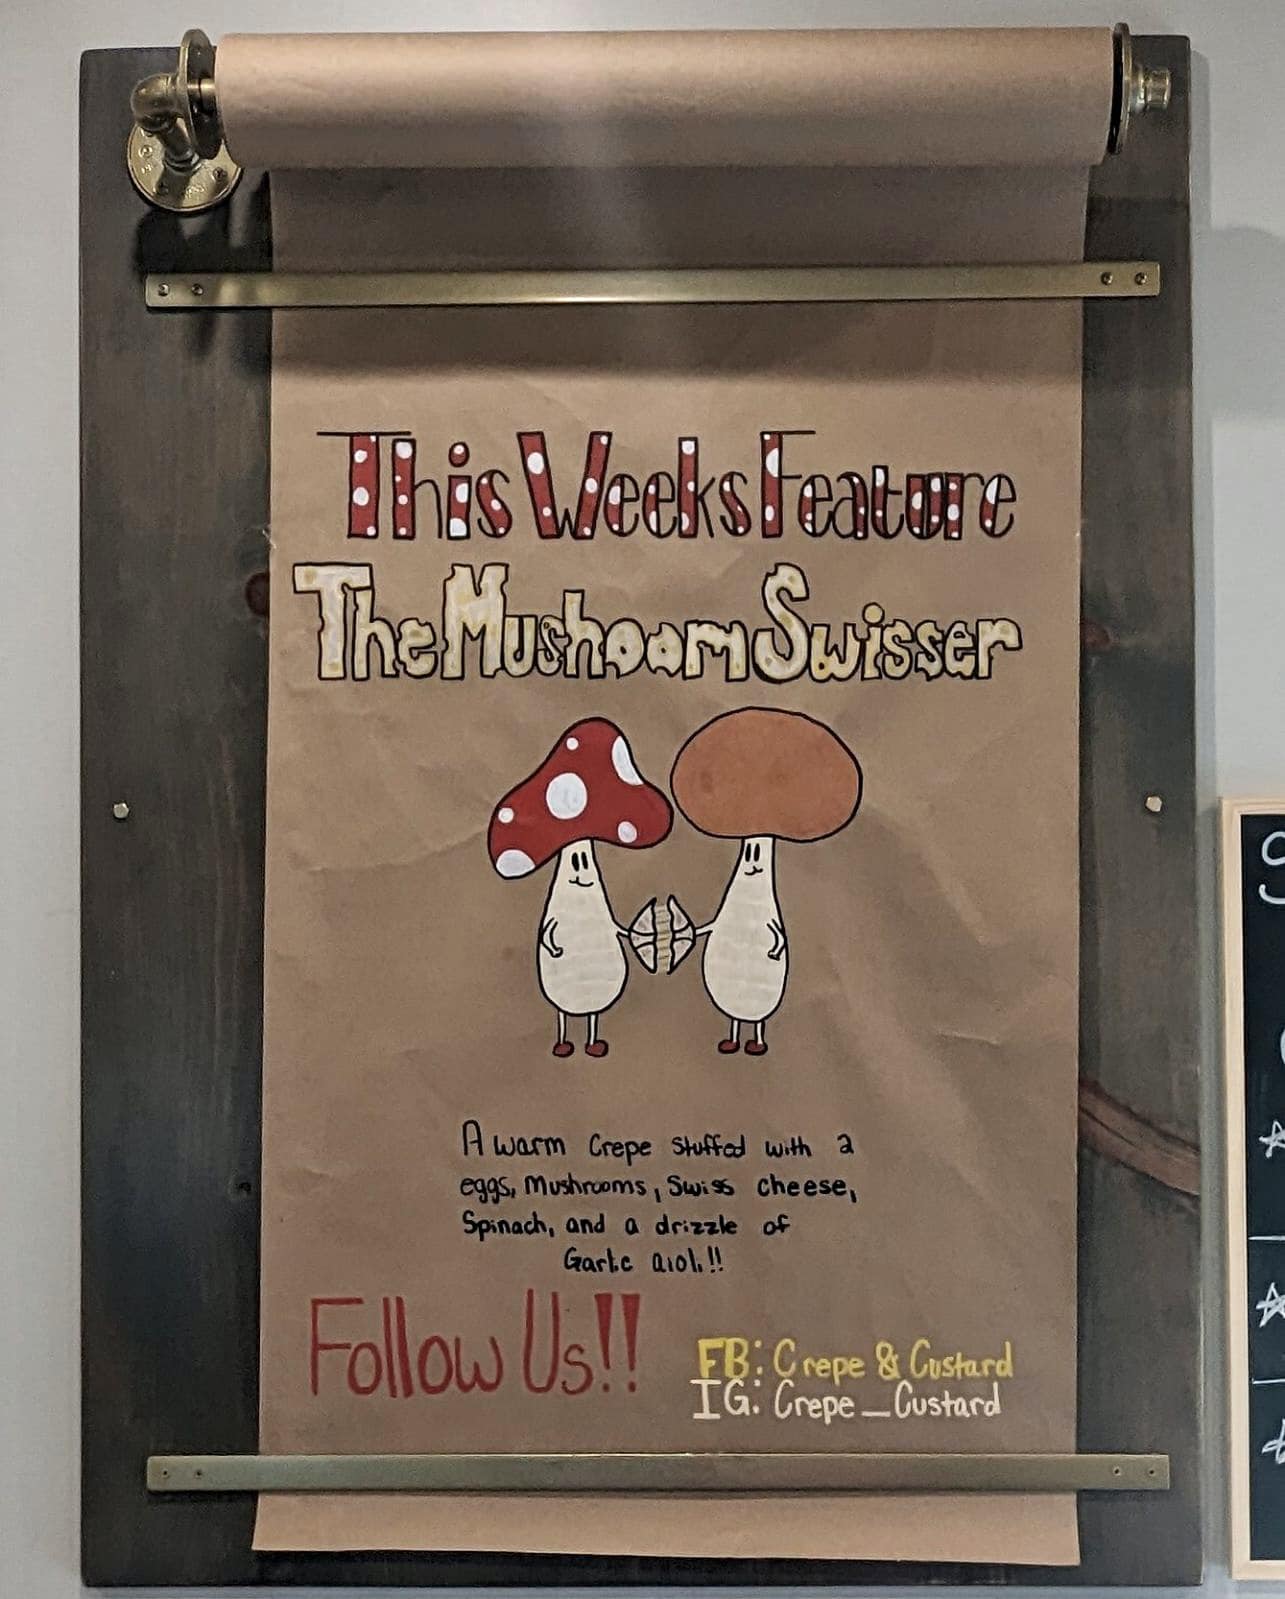 This Weeks Feature
The Mushoom Swisser
A warm Crepe stuffed with 2
eggs, Mushrooms, Swiss cheese,
Spinach, and a drizzle of
Garlic aioli!!
Follow Us!!
FB: Crepe & Custard
IG: Crepe_Custard